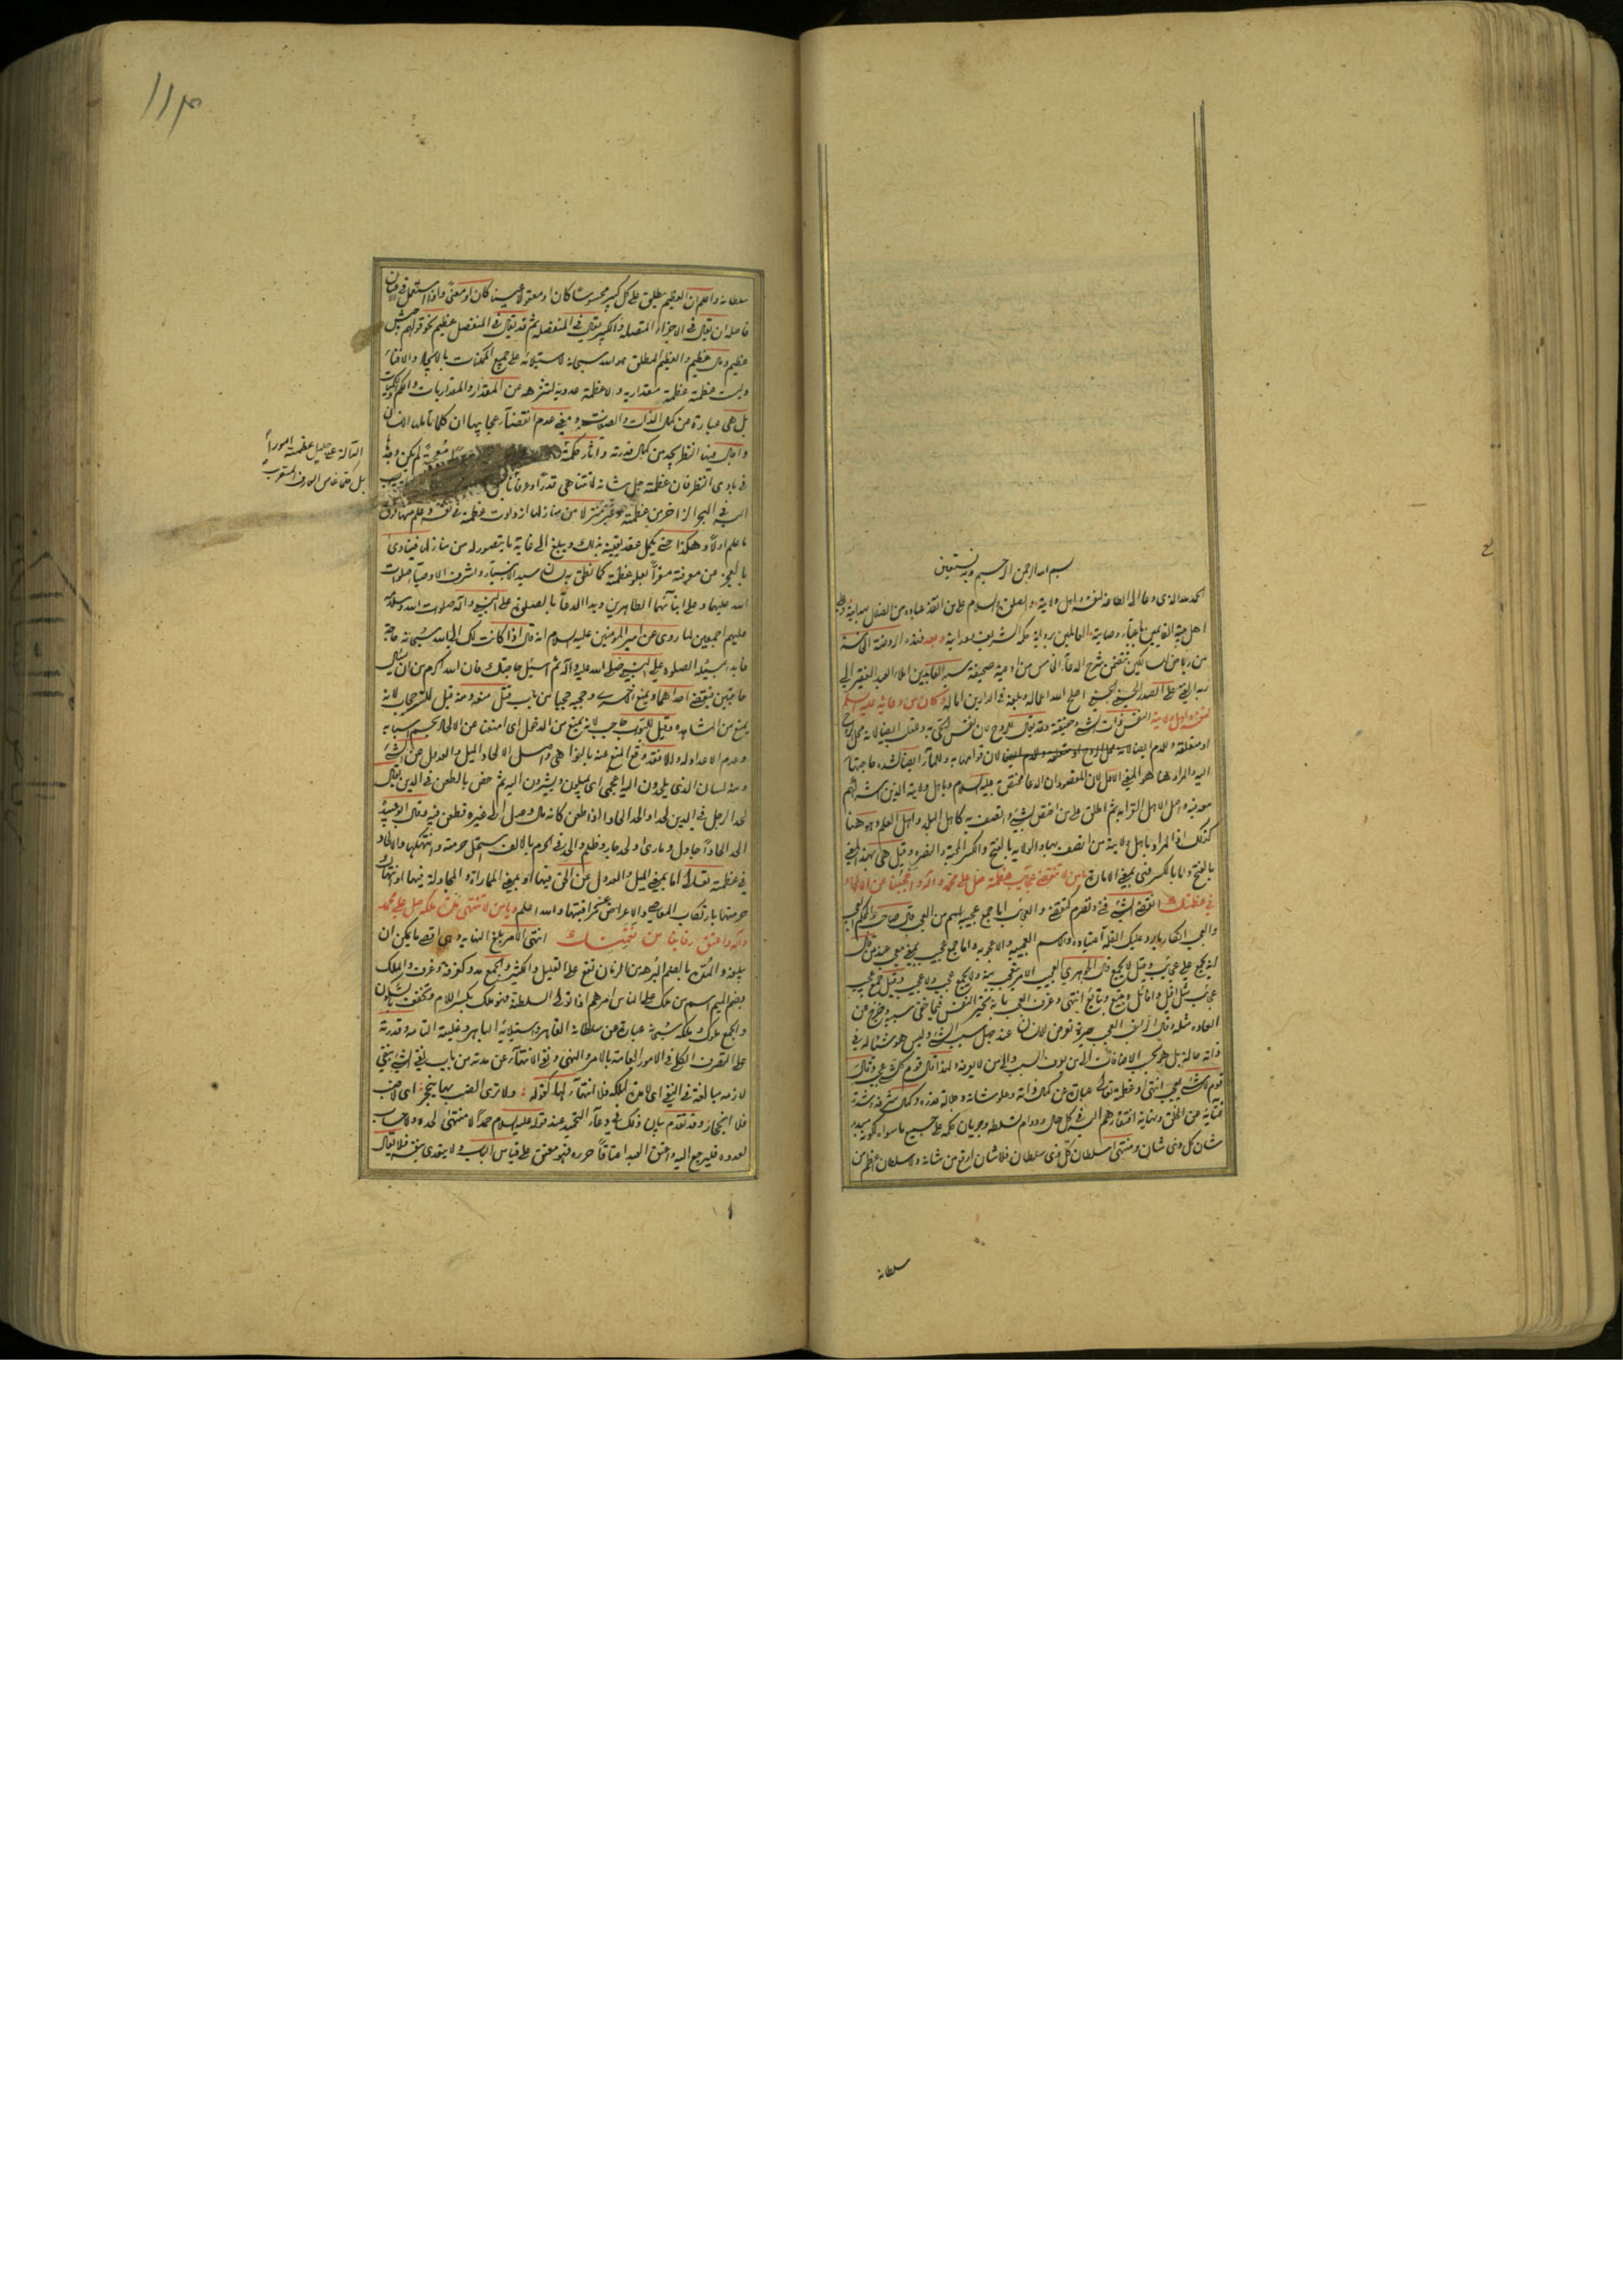 بسم الله الرحمن الرحيم وبه نستعين
الحمد لله الذي دعانا الى الطاعة لنفسه واهل ولايته والصلوة والسلام على من انقذ عباده من الضلال بهدايته وعلى
اهل بيته القائمين باعباء وصايته العاملين برواية حكمه الشريف ودرايته وبعد فهذه الروضة الخامسة
من رياض السالكين تتضمن شرح الدعاء الخامس من ادعية صحيفة سيد العابدين املاء العبد الفقير الى
ربه الغني علي الصدر الحسيني الحسني اصلح الله اعماله وبلغه في الدارين اماله وكان من دعائه عليه السلم
لنفسه واهل ولايته النفس ذات الشيء وحقيقته وقد يقال للروح لان نفس الحي به وللقلب ايضا لانه محل الروح
او متعلقه وللدم ايضا لان قوامها به وللماء ايضا لشدة حاجتها
اليه والمراد هنا هو المعنى الاول لان المقصود ان الدعا مختص به عليه السلام وباهل ولايته الذين
واصل الاهل القرابة ثم اطلق على من اختص بشيء واتصف به كاهل البلد واهل العلم وهو هنا
كذلك اذ المراد باهل ولايته من اتصف بها والولاية بالفتح والكسر المحبة والنصرة وقيل هي بهذا المعنى
بالفتح واما بالكسر فهي بمعنى الامارة يا من لا تنقضي عجائب عظمته صل على محمد واله واحجبنا عن الالحاد
في عظمتك انقضى الشيء فنى وتصرم كتقضى والعجائب اما جمع عجيبة اسم من العجب قال صاحب المحكم العجب
والعجب انكار ما يرد عليك لقلة اعتياده والاسم العجيبة والاعجوبة واما جمع عجيب بمعنى
لم يجمع على عجائب وقيل لا يجمع قال الجوهري العجيب الامر يتعجب منه ولا يجمع عجب ولا عجيب وقيل جمع عجيب
عجائب مثل افيل وافائل وتبيع وتبائع انتهى وعرف العجب بانه تحير النفس فيما خفي سببه وخرج عن
العادة مثله وقال الراغب العجب حيرة تعرض للانسان عند جهل سبب الشيء وليس هو شيئا له في
ذاته حالة بل هو بحسب الاضافات الى من يعرف السبب والى من لا يعرفه ولهذا قال قوم كل شيء عجب وقال
قوم لا شيء عجب انتهى وعظمته تعالى عبارة عن كمال ذاته وعلو شانه وجلالة قدره وكمال شرفه وشدة
غنائه عن الخلق ونهاية افتقارهم اليه في كل حال ودوام تسلطه وجريان حكمه على جميع ما سواه لكونه مبدء
شان كل ذي شان ومنتهى سلطان كل ذي سلطان فلا شان ارفع من شانه ولا سلطان اعظم من
سلطانه
١١٣
سلطانه واعلم ان العظيم يطلق على كل كبير محسوسا كان او معقولا عينا كان او معنى واذا استعمل في الاعيان
فاصله ان يقال في الاجزاء المتصلة والكبير يقال في المنفصلة ثم قد يقال في المنفصل عظيم نحو قولهم جيش
عظيم ومال عظيم والعظيم المطلق هو الله سبحانه لاستيلائه على جميع الممكنات بالايجاد والافناء
وليست عظمته عظمة مقدارية ولا عظمة عددية لتنزهه عن المقدار والمقداريات والكم والكميات
بل هي عبارة من كمال الذات والصفات ومعنى عدم انقضاء عجايبها ان كلما تامل الانسان
واجال فيها النظر يجد من كمال قدرته واثار حكمته معجبة لم يكن وجدها
في بادي النظر فان عظمته جل شانه لا تتناهى قدرا وعرفانا
السير في البحر الزاخر من عظمته وعبر منزلا من منازلها ازدادت عظمته في نفسه وعلم منها فوق
ما علم اولا وهكذا حتى يكمل عقد يقينه بذلك ويبلغ الى غاية ما يتصور له من منازلها فينادى
بالعجز عن معرفته مقرا بعلو عظمته كما نطق به لسان سيد الانبياء واشرف الاوصياء صلوات
الله عليهما وعلى ابنائهما الطاهرين وبدا الدعاء بالصلوة على النبي واله صلوات الله وسلامه
عليهم اجمعين لما روى عن امير المؤمنين عليه السلام انه قال اذا كانت لك الى الله سبحانه حاجة
فابدء بمسئلة الصلوة على النبي صلى الله عليه واله ثم اسئل حاجتك فان الله اكرم من ان يسئل
حاجتين فيقضي احداهما ويمنع الاخرى وحجبه حجبا من باب قتل منعه ومنه قيل للستر حجاب لانه
يمنع من المشاهدة وقيل للبواب حاجب لانه يمنع من الدخول اى امنعنا عن الالحاد بحسم اسبابه
وعدم الاعداد له والا فقد وقع المنع عنه بالنواهي واصل الالحاد الميل والعدول عن الشيء
ومنه لسان الذي يلحدون اليه اعجمي اى يميلون ويشيرون اليه ثم خص بالطعن في الدين يقال
لحد الرجل في الدين لحدا والحد الحادا اذا طعن كانه مال وعدل الى غيره فطعن فيه وقال ابو عبيدة
الحد الحادا جادل ومارى ولحد جار وظلم والحد في الحرم بالالف استحل حرمته وانتهكها والالحاد
في عظمته تعالى اما بمعنى الميل والعدول عن الحق فيها او بمعنى المماراة والمجادلة فيها او انتهاك
حرمتها بارتكاب المعاصي والاعراض عن مراقبتها والله اعلم ويا من لا تنتهي مدة ملكه صل على محمد
واله واعتق رقابنا من نقمتك انتهى الامر بلغ النهاية وهى اقصى ما يمكن ان
يبلغه والمدة بالضم البرهة من الزمان تقع على القليل والكثير والجمع مدد كغرفة وغرف والملك
بضم الميم اسم من ملك على الناس امرهم اذا تولى السلطنة فهو ملك بكسر اللام وتخفف بالسكون
والجمع ملوك وملكه سبحانه عبارة عن سلطانه القاهرة واستيلائه الباهر وغلبته التامة وقدرته
على التصرف الكلي في الامور العامة بالامر والنهي ونفي الانتهاء عن مدته من باب نفي الشيء بنفي
لازمه مبالغة في النفي اى لا مدة لملكه فلا انتهاء لها كقوله ولا ترى الضب بها ينجحر اى لا ضب
فلا انجحار وقد تقدم بيان ذلك في دعاء التحميد عند قوله عليه السلام حمدا لا منتهى لحده ولا حساب
لعدده فليرجع اليه واعتق العبد اعتاقا حرره فهو معتق على قياس الباب ولا يتعدى بنفسه فلا يقال
الدالة على جليل عظمته امورا